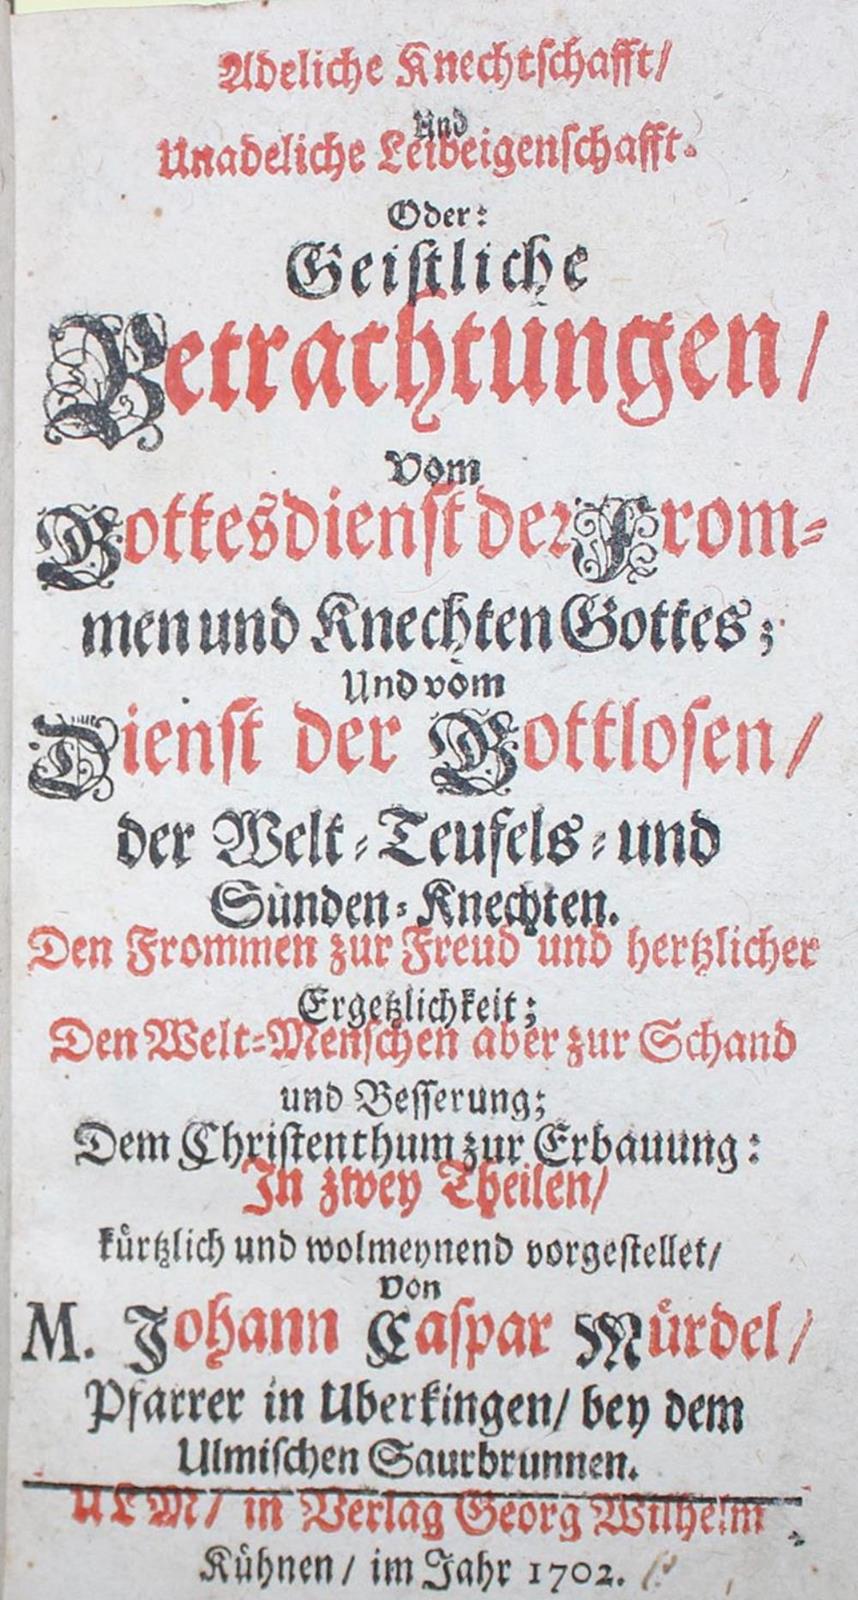 Adeliche Knechtschafft/
Und
Unadeliche Leibeigenschafft.
Oder:
Geistliche
Betrachtungen/
vom
Gottesdienst der From-
men und Knechten Gottes;
Und vom
Dienst der Gottlosen/
der Welt-Teufels-und
Sünden-Knechten.
Den Frommen zur Freud und hertzlicher
Ergetzlichkeit;
Den Welt-Menschen aber zur Schand
und Besserung;
Dem Christenthum zur Erbauung:
In zwey Theilen/
kürtzlich und wolmeynend vorgestellet/
von
M. Johann Caspar Mürdel/
Pfarrer in Uberkingen/ bey dem
Ulmischen Saurbrunnen.
ULM/ in Verlag Georg Wilhelm
Kühnen/ im Jahr 1702.